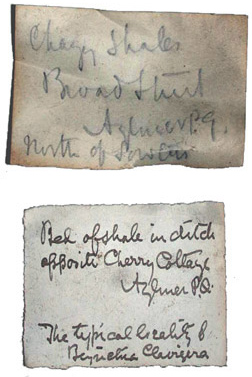 Chazy Shales
Broad Street
Aylmer P.Q.
North of
Bed of shale in ditch
opposite Cherry Cottage
Aylmer P.Q.
The typical locality of
Beyrichia Clavigera